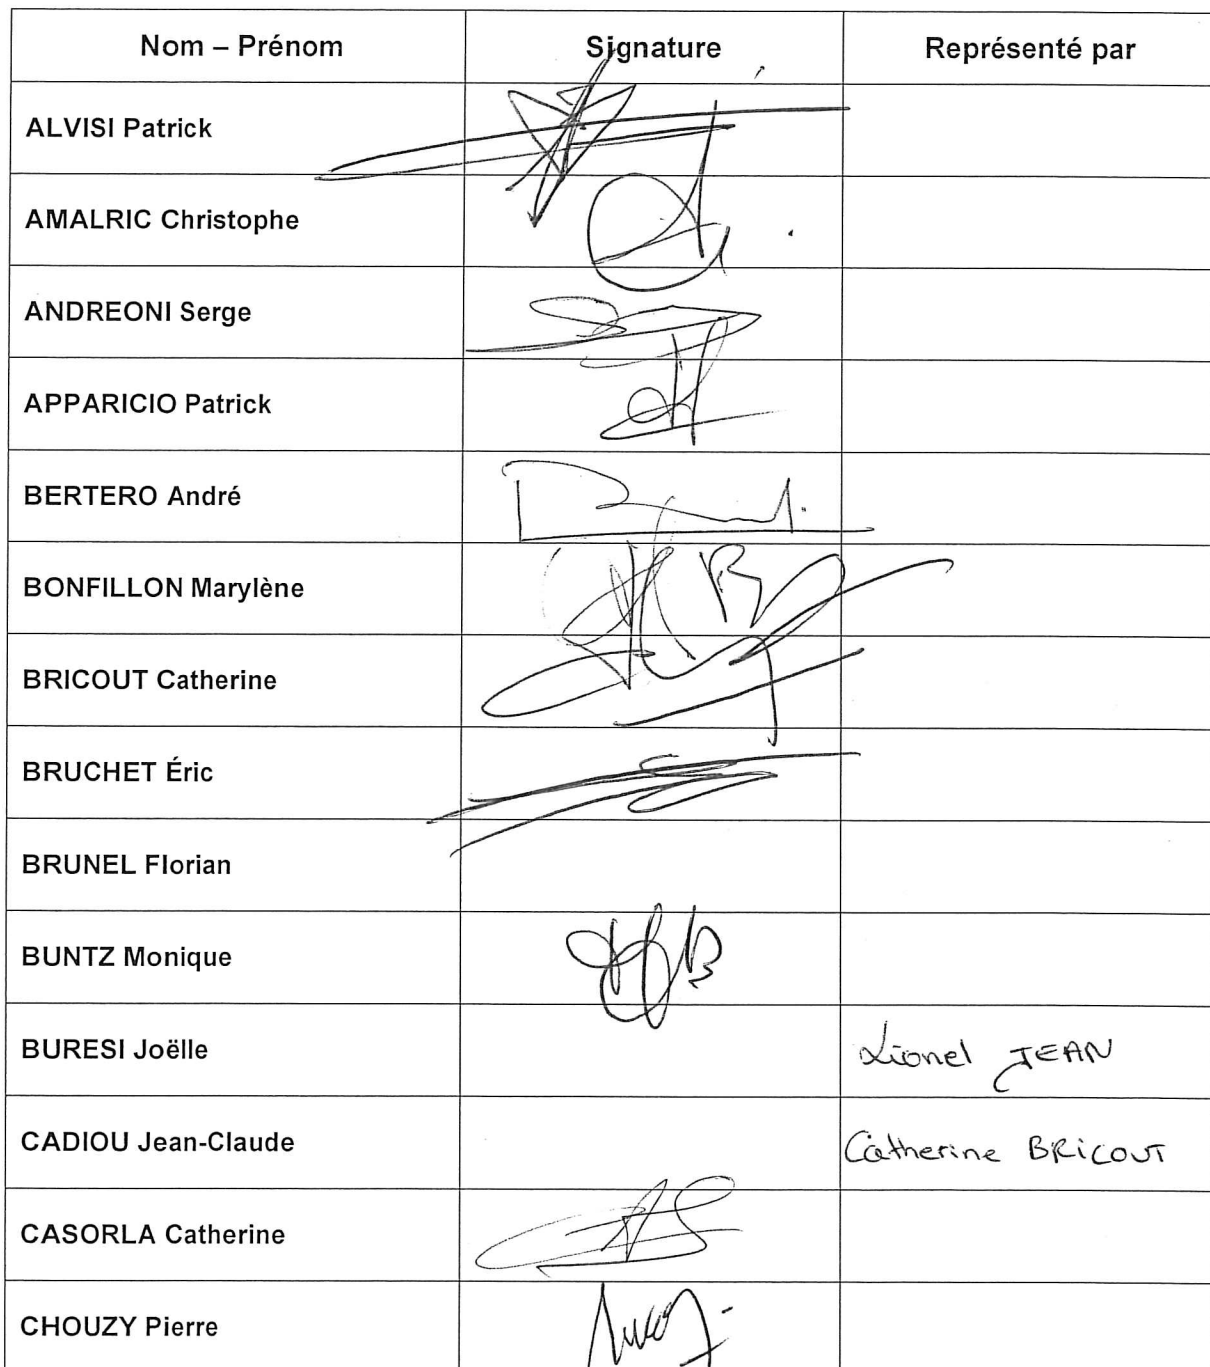 Nom – Prénom Signature Représenté par
ALVISI Patrick
AMALRIC Christophe
ANDREONI Serge
APPARICIO Patrick
BERTERO André
BONFILLON Marylène
BRICOUT Catherine
BRUCHET Éric
BRUNEL Florian
BUNTZ Monique
BURESI Joëlle Lionel JEAN
CADIOU Jean-Claude Catherine BRICOUT
CASORLA Catherine
CHOUZY Pierre